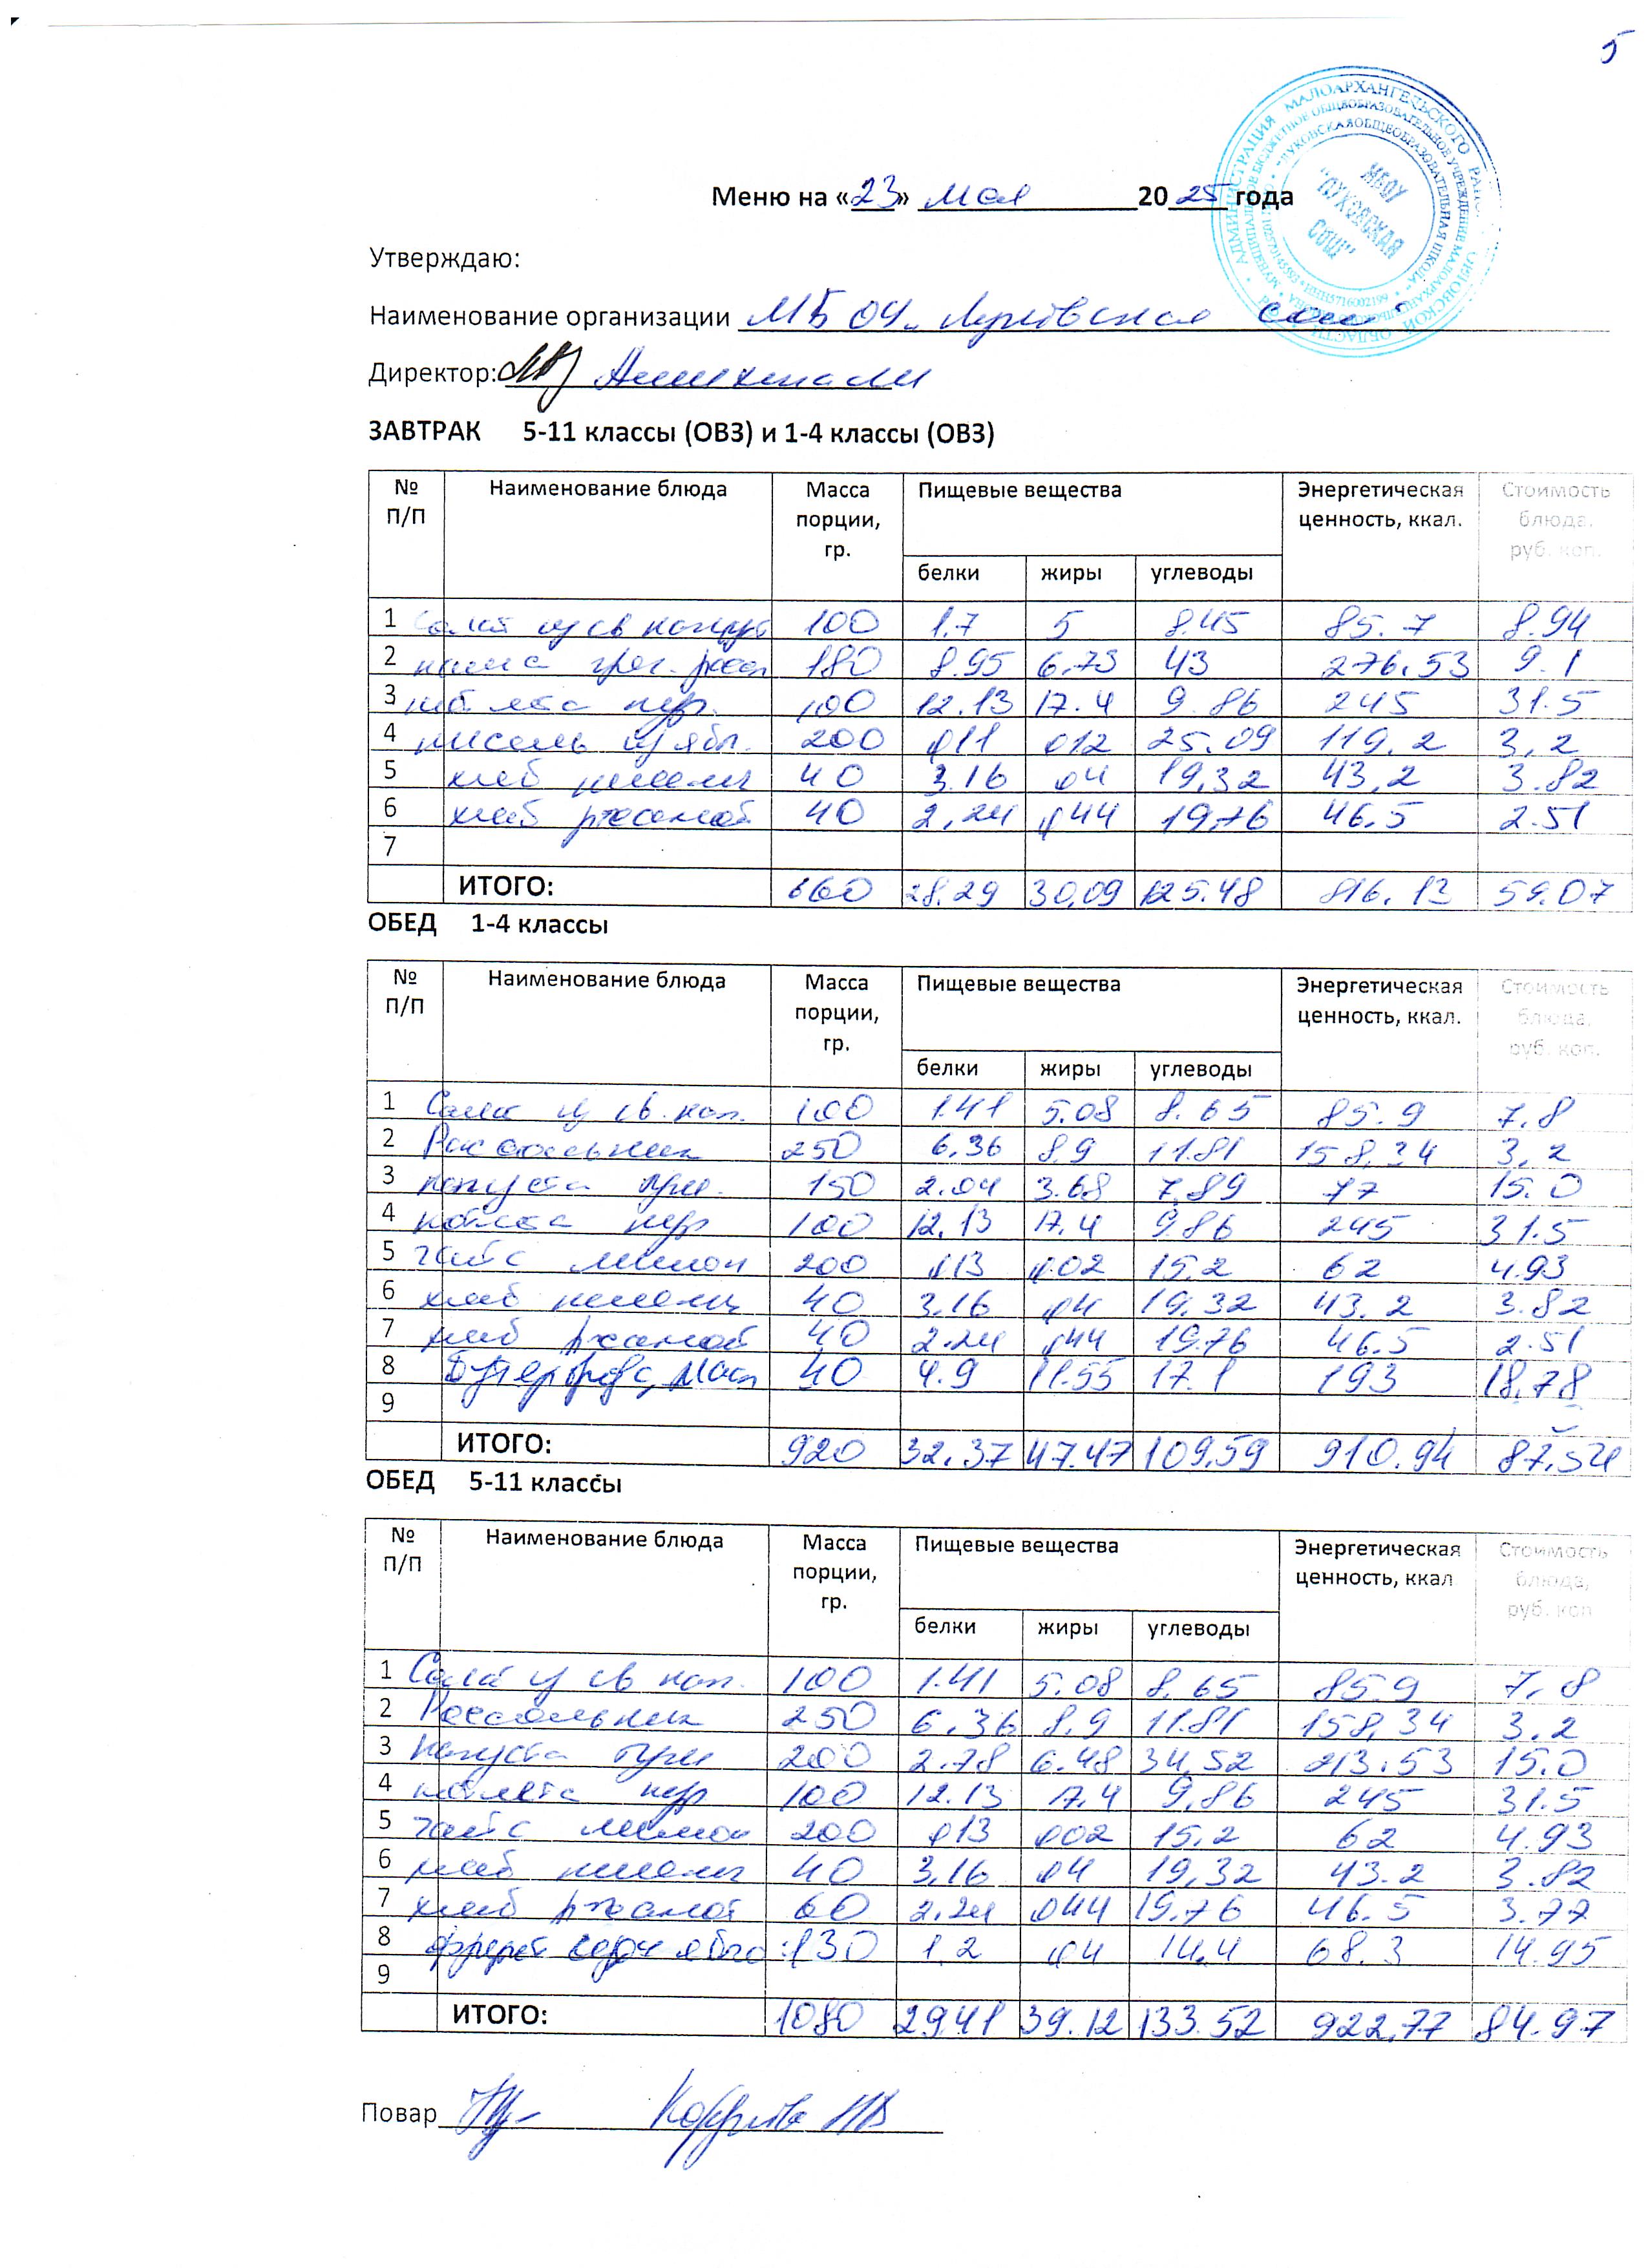 5
Меню на «23» мая 2025 года
Утверждаю:
Наименование организации МБОУ "Луковская сош"
Директор:
ЗАВТРАК 5-11 классы (ОВЗ) и 1-4 классы (ОВЗ)
№ П/П Наименование блюда Масса порции, гр. Пищевые вещества Энергетическая ценность, ккал. Стоимость блюда, руб. коп.
белки жиры углеводы
1 Салат из св капуст 100 1.7 5 8.45 85.7 8.94
2 каша греч. расс 180 8.95 6.73 43 276.53 9.1
3 котлета кур. 100 12.13 17.4 9.86 245 31.5
4 кисель из ябл. 200 011 012 25.09 119.2 3,2
5 хлеб пшенич 40 3.16 04 19,32 43,2 3.82
6 хлеб ржаной 40 2,24 044 19,76 46.5 2.51
7
ИТОГО: 660 28.29 30.09 125.48 816.13 59.07
ОБЕД 1-4 классы
№ П/П Наименование блюда Масса порции, гр. Пищевые вещества Энергетическая ценность, ккал. Стоимость блюда, руб. коп.
белки жиры углеводы
1 Салат из св. кап. 100 1.41 5.08 8.65 85.9 7,8
2 Рассольник 250 6.36 8.9 11.81 158,34 3,2
3 капуста туш. 150 2.04 3.68 7,89 77 15.0
4 котлета кур 100 12.13 17.4 9.86 245 31.5
5 чай с лимон 200 013 002 15.2 62 4.93
6 хлеб пшениц 40 3.16 04 19.32 43.2 3.82
7 хлеб ржаной 40 2.24 044 19.76 46.5 2.51
8 Бутерброд с масл 40 4.9 11.55 17.1 193 18,78
9
ИТОГО: 920 32.37 47.47 109,59 910.94 87,54
ОБЕД 5-11 классы
№ П/П Наименование блюда Масса порции, гр. Пищевые вещества Энергетическая ценность, ккал Стоимость блюда, руб. коп
белки жиры углеводы
1 Салат из св кап. 100 1.41 5.08 8.65 85.9 7,8
2 Рассольник 250 6.36 8.9 11.81 158,34 3,2
3 капуста туш 200 2.78 6.48 34,52 213.53 15.0
4 котлета кур 100 12.13 17.4 9,86 245 31.5
5 чай с лимон 200 013 002 15.2 62 4.93
6 хлеб пшенич 40 3,16 04 19,32 43.2 3.82
7 хлеб ржаной 60 2.24 044 19.76 46.5 3.77
8 130 1.2 04 14,4 68.3 14.95
9
ИТОГО: 1080 29.41 39.12 133.52 922,77 84.97
Повар
АДМИНИСТРАЦИЯ МАЛОАРХАНГЕЛЬСКОГО РАЙОНА ОРЛОВСКОЙ ОБЛАСТИ
МБОУ
"ЛУКОВСКАЯ
СОШ"